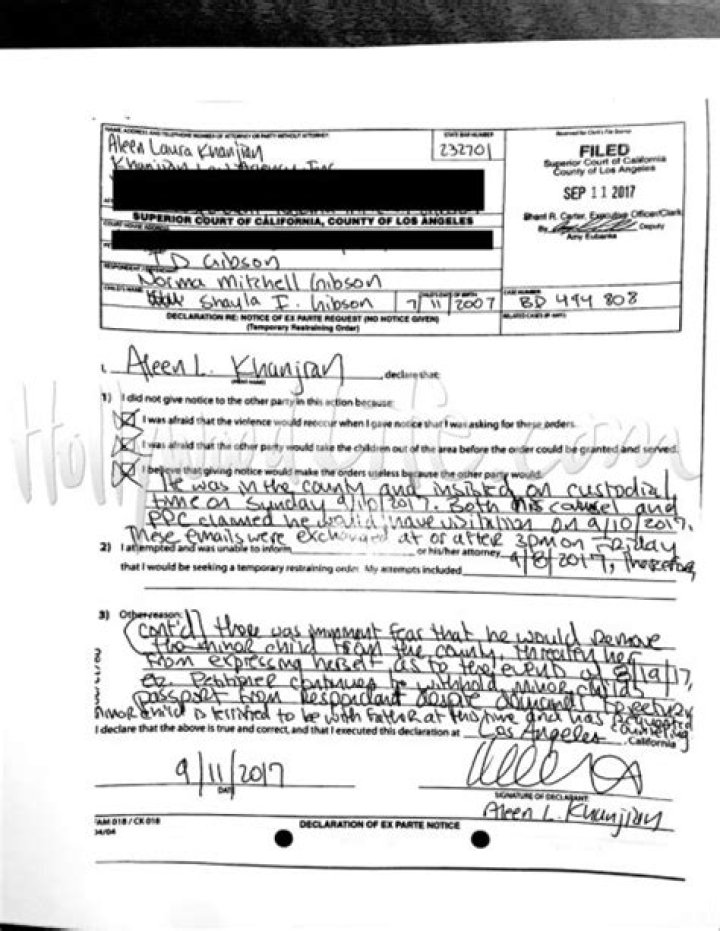 NAME, ADDRESS AND TELEPHONE NUMBER OF ATTORNEY OR PARTY WITHOUT ATTORNEY:
STATE BAR NUMBER
Reserved for Clerk's File Stamp
Aleen Laura Khanjian
232701
Khanjian Law
FILED
Superior Court of California
County of Los Angeles
SEP 11 2017
SUPERIOR COURT OF CALIFORNIA, COUNTY OF LOS ANGELES
COURTHOUSE ADDRESS:
Sherri R. Carter, Executive Officer/Clerk
By Deputy
Amy Eubanks
Gibson
Norma Mitchell Gibson
CHILD'S NAME
Shayla I. Gibson
CHILD'S DATE OF BIRTH
7/11/2007
CASE NUMBER
BD 494 808
DECLARATION RE: NOTICE OF EX PARTE REQUEST (NO NOTICE GIVEN)
(Temporary Restraining Order)
RELATED CASES (IF ANY):
I, Aleen L. Khanjian, declare that:
(PRINT NAME)
1) I did not give notice to the other party in this action because:
I was afraid that the violence would reoccur when I gave notice that I was asking for these orders.
I was afraid that the other party would take the children out of the area before the order could be granted and served.
I believe that giving notice would make the orders useless because the other party would
He was in the county and insisted on custodial
time on Sunday 9/10/2017. Both his counsel and
PPC claimed he would have visitation on 9/10/2017.
These emails were exchanged at or after 3pm on Friday
2) I attempted and was unable to inform or his/her attorney 9/8/2017, therefore,
that I would be seeking a temporary restraining order. My attempts included
3) Other reason:
(cont'd) there was imminent fear that he would remove
the minor child from the county, threaten her
from expressing herself as to the events of 8/19/17,
etc. Petitioner continues to withhold minor child's
passport from Respondent despite
minor child is terrified to be with Father at this time and has requested counseling
I declare that the above is true and correct, and that I executed this declaration at Los Angeles, California
9/11/2017
DATE
SIGNATURE OF DECLARANT
Aleen L. Khanjian
FAM 018 / CK 018
04/04
DECLARATION OF EX PARTE NOTICE
HollywoodLife.com